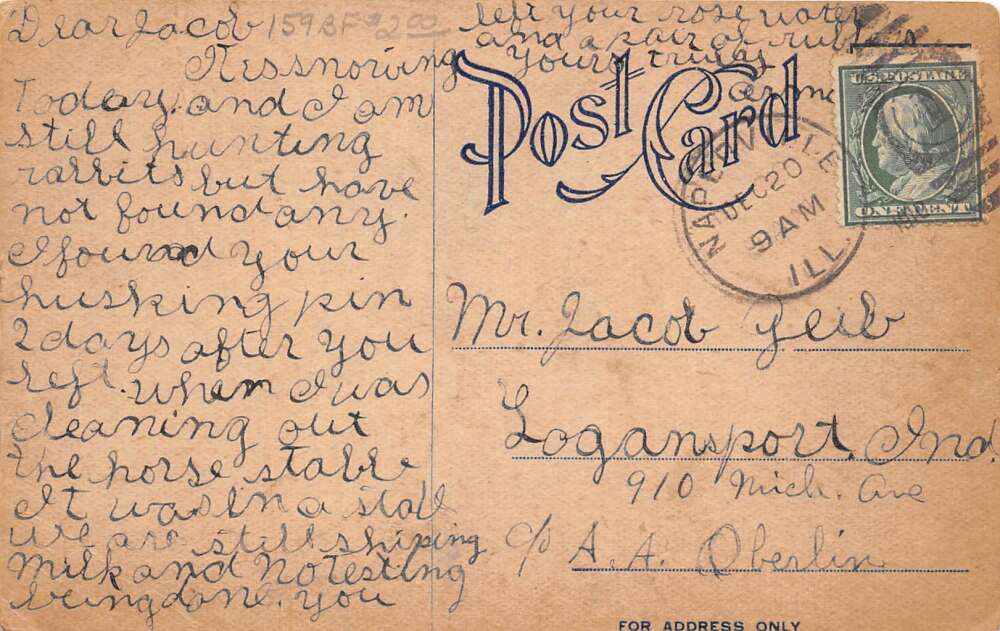 Dear Jacob
159BF $2.00
It is snowing
Today. and I am
still hunting
rabbits but have
not found any.
I found your
husking pin
2 days after you
left. when I was
cleaning out
the horse stable
It was in a stall
we are still shiping
milk and no testing
being done. you
left your rose water
and a pair of
Yours truly
POST CARD
U.S. POSTAGE
ONE CENT
NAPERVILLE
DEC 20
9 AM
ILL.
Mr. Jacob Yeib
Logansport, Ind.
910 Mich. Ave
c/o A. A. Oberlin
FOR ADDRESS ONLY